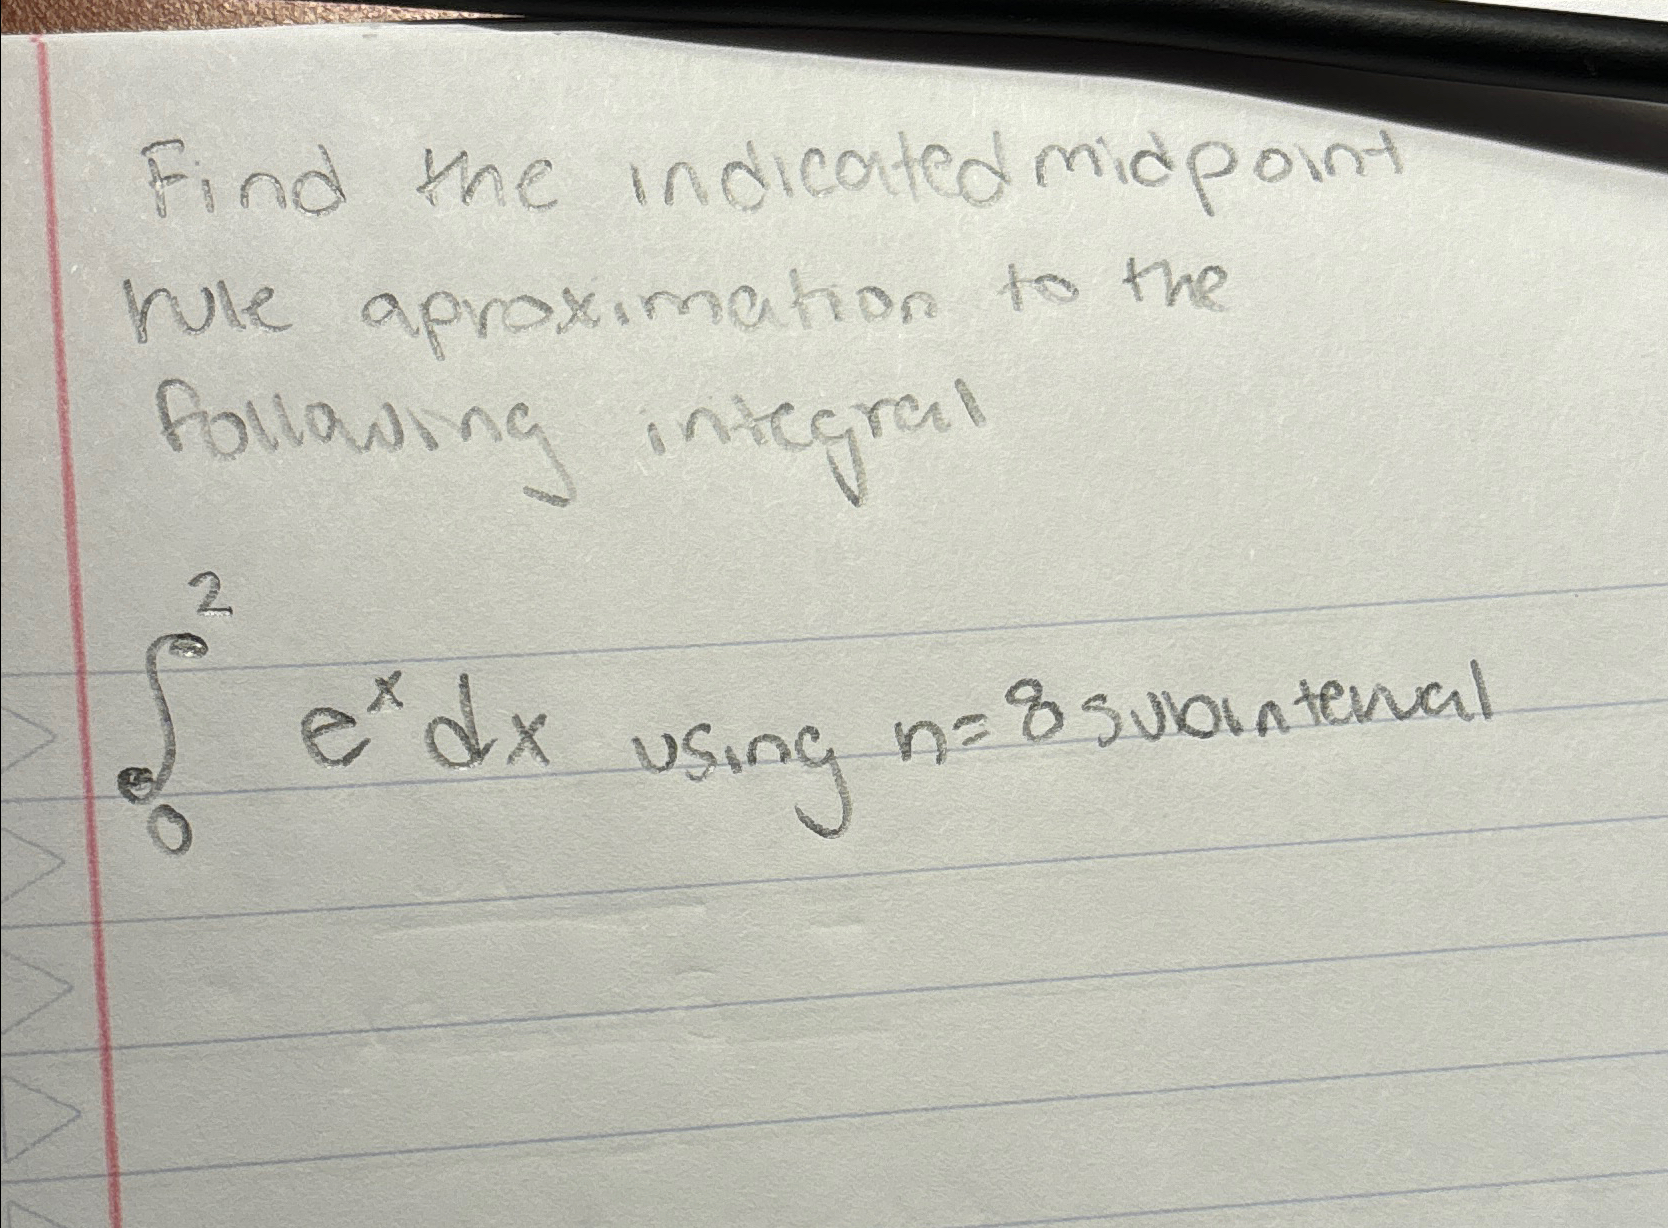 Find the indicated midpoint
rule aproximation to the
following integral
∫₀² eˣ dx using n=8 subinterval